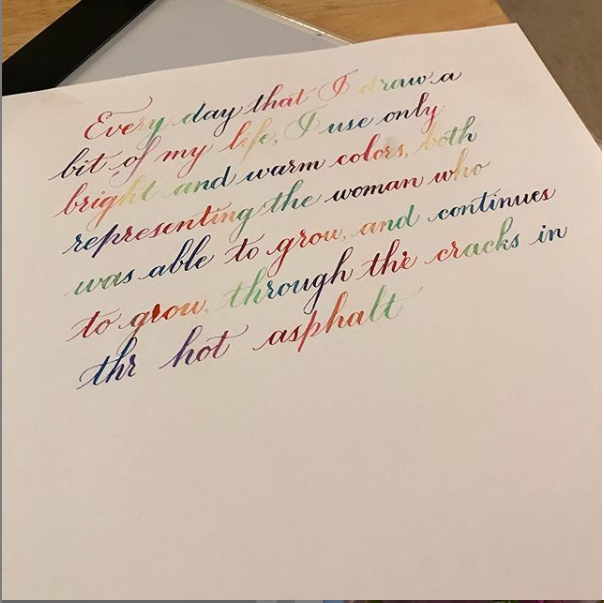 Every day that I draw a
bit of my life, I use only
bright and warm colors, both
representing the woman who
was able to grow, and continues
to grow, through the cracks in
the hot asphalt